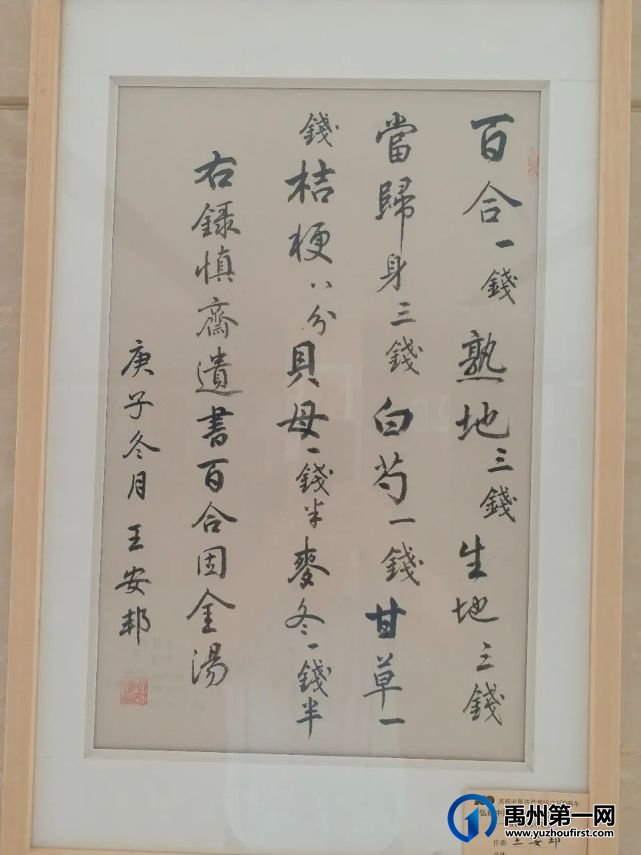 百合一錢熟地三錢生地三錢
當歸身三錢白芍一錢甘草一
錢桔梗八分貝母一錢半麥冬一錢半
右錄慎齋遺書百合固金湯
庚子冬月王安邦
作者 王安邦
禹州第一网
www.yuzhoufirst.com